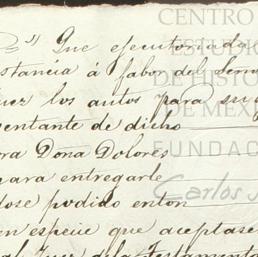 Que ejecutoriada
stancia á fabor del Seno
uez los autos para su
sentante de dicho
ora Doña Dolores
para entregarle
dose podido enton
en especie que aceptase
al Juez de la Testamento
CENTRO
ESTUDIO
DE HISTO
DE MEXI
FUNDAC
Carlos